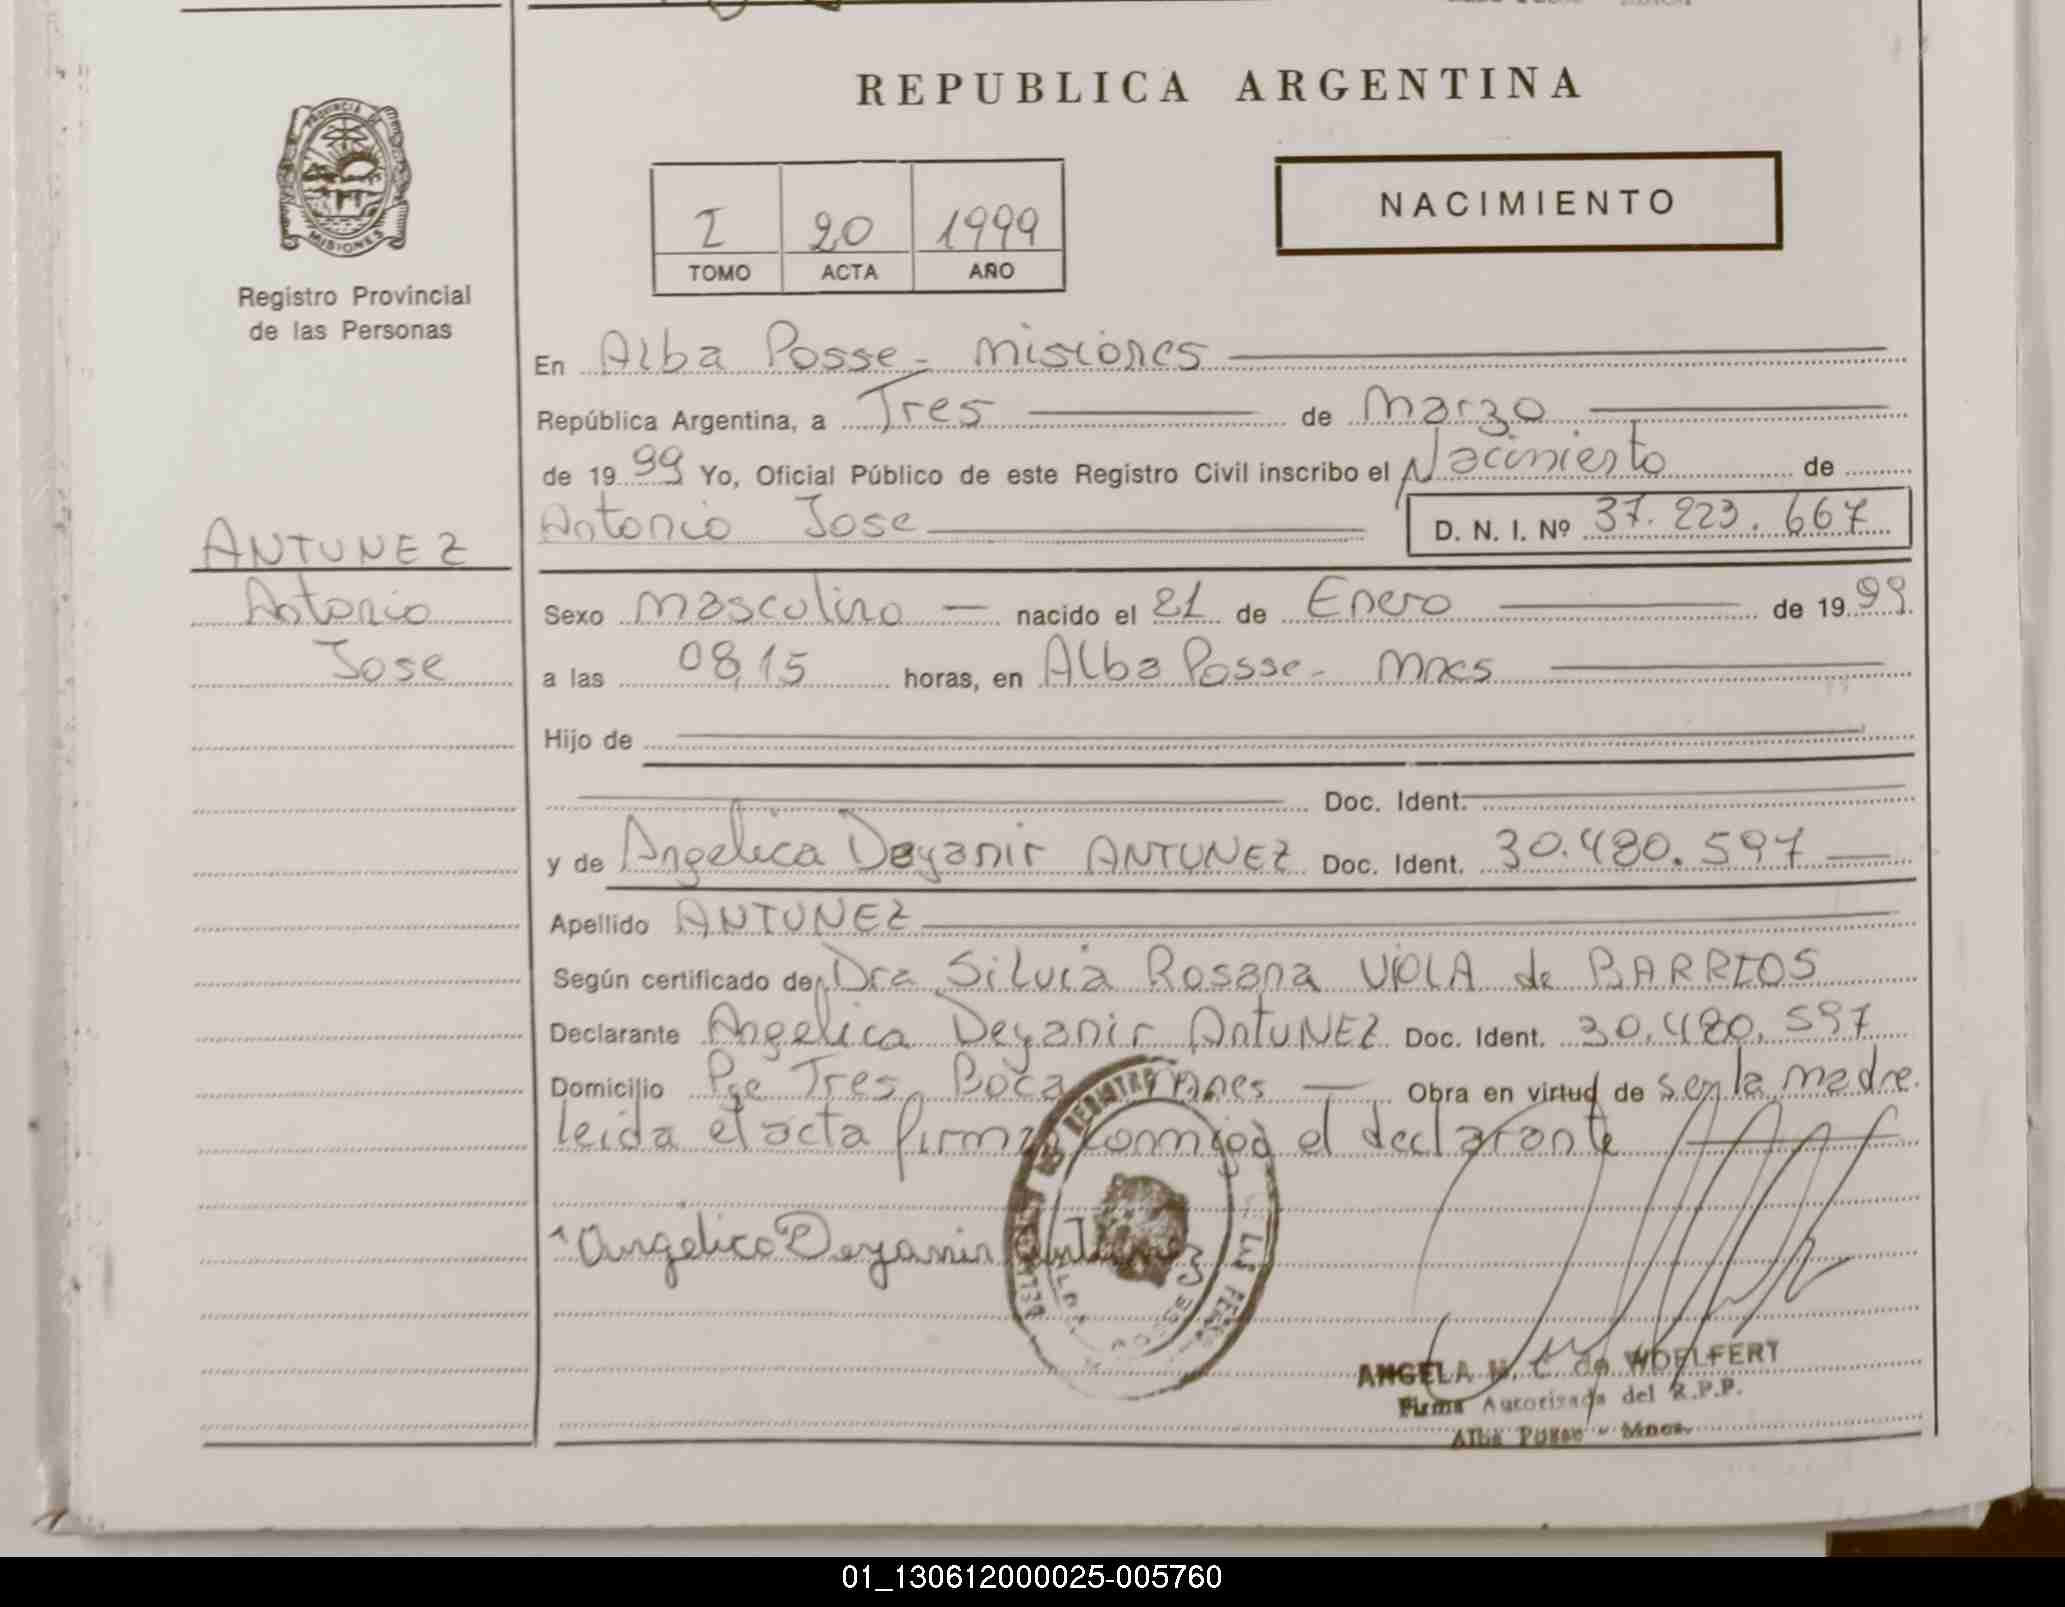 REPUBLICA ARGENTINA
PROVINCIA DE
MISIONES
Registro Provincial
de las Personas
I 20 1999
TOMO ACTA AÑO
NACIMIENTO
En Alba Posse - Misiones
República Argentina, a Tres de Marzo
de 1999 Yo, Oficial Público de este Registro Civil inscribo el Nacimiento de
Antonio Jose D. N. I. Nº 37.223.667
ANTUNEZ
Antonio
Jose
Sexo masculino nacido el 21 de Enero de 1999.
a las 08,15 horas, en Alba Posse - Mnes
Hijo de
Doc. Ident.
y de Angelica Deyanir ANTUNEZ Doc. Ident. 30.480.597
Apellido ANTUNEZ
Según certificado de Dra Silvia Rosana VIOLA de BARRIOS
Declarante Angelica Deyanir AntUNEZ Doc. Ident. 30.480.597
Domicilio Pje Tres Boca Mnes Obra en virtud de ser la madre.
leida el acta firma conmigo el declarante
Angelica Deyanir Antunez
ANGELA N. C. de WOELFERT
Firma Autorizada del R.P.P.
Alba Posse - Mnes.
01_130612000025-005760